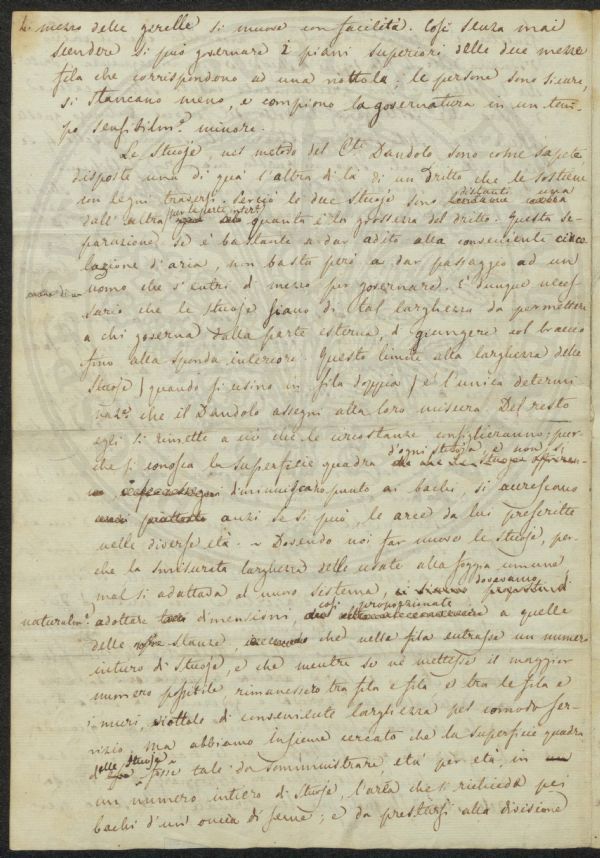 mezzo delle girelle si muove con facilità. Così senza mai
scendere si può governare i piani superiori delle due mezze
fila che corrispondono ad una viottola; le persone sono sicure,
si stancano meno, e compiono la governatura in un tem-
po sensibilm.e minore.
Le Stuoje, nel metodo del C.te Dandolo, sono come sapete
disposte una di quà l'altra di là di un dritto che le sostiene
con legni traversi. Perciò le due stuoje sono distanti una
dall'altra per le parti interne quanta è la grossezza del dritto. Questa se-
parazione se è bastante a dar adito alla conveniente circo
lazione d'aria, non basta però a dar passaggio ad un
uomo che s'entri di mezzo per governare. È dunque neces
sario che le stuoje siano di tal larghezza da permettere
a chi governa dalla parte esterna, di giungere col braccio
fino alla sponda interiore. Questo limite alla larghezza delle
Stuoje (quando si usino in fila doppia) è l'unica determi
naz.e che il Dandolo assegni alla loro misura. Del resto
egli si rimette a ciò che le circostanze consiglieranno; pur-
che si conosca la superficie quadra d'ogni stuoja, e non si
diminuiscano punto ai bachi, si accrescano
anzi se si può, le aree da lui prescritte
nelle diverse età. ~ Dovendo noi far nuove le stuoje, per-
che la smisurata larghezza delle usate alla foggia comune,
mal si adattava al nuovo sistema, dovevamo
naturalm.e adottare dimensioni così proporzionate a quelle
delle stanze, che nelle fila entrasse un numero
intiero di stuoje, e che mentre se ne mettesse il maggior
numero possibile, rimanessero tra fila e fila e tra le fila e
i muri, viottole di conveniente larghezza pel comodo ser-
vizio. Ma abbiamo insieme cercato che la superficie quadra
delle Stuoje fosse tale da somministrare età per età, in
un numero intiero di stuoje, l'area che si richieda pei
bachi d'un'oncia di seme; e da prestarsi alla divisione